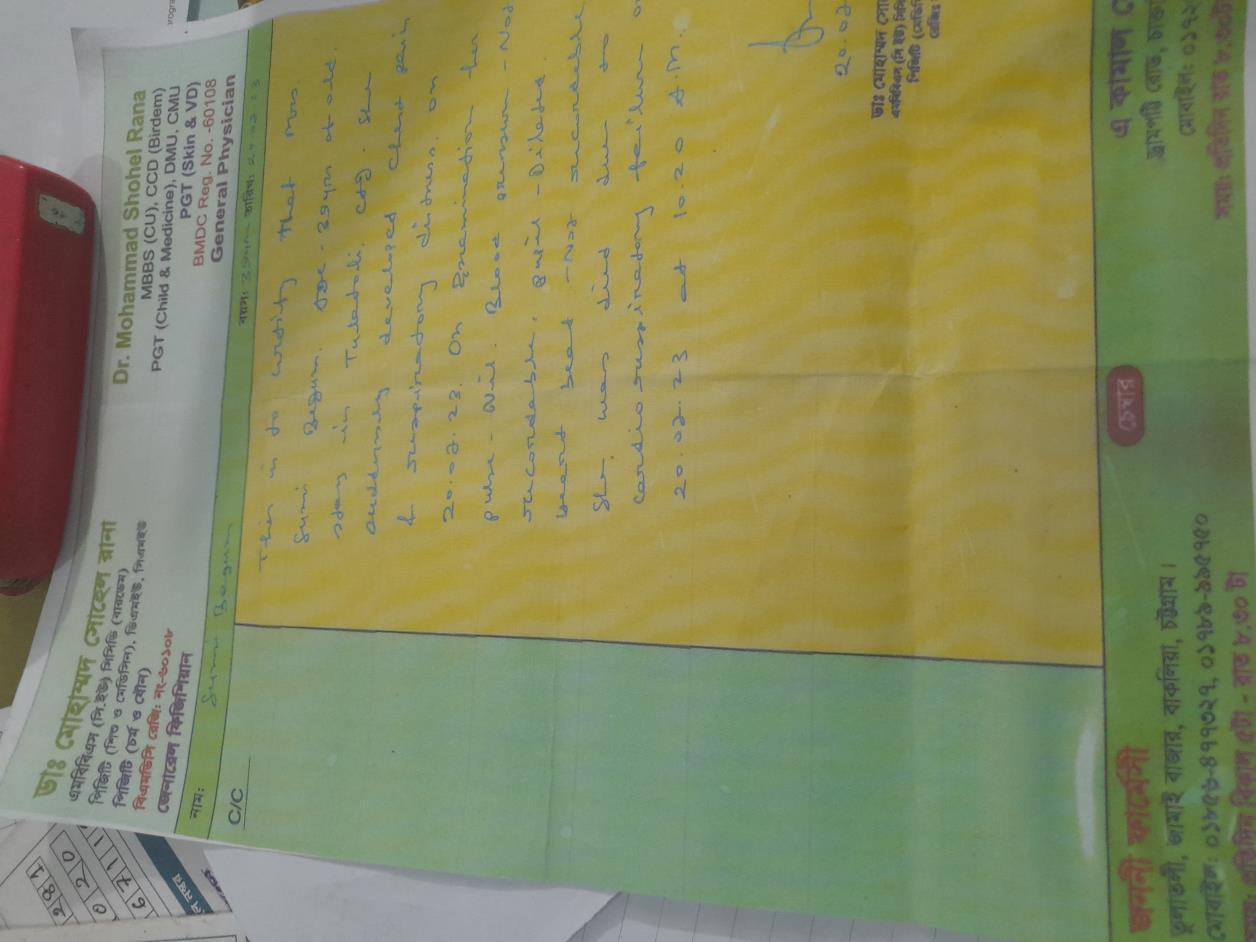 ডাঃ মোহাম্মদ সোহেল রানা
এমবিবিএস (সি.ইউ) সিসিডি (বারডেম)
পিজিটি (শিশু ও মেডিসিন), ডিএমইউ, সিএমইউ
পিজিটি (চর্ম ও যৌন)
বিএমডিসি রেজি: নং-৬০১০৮
জেনারেল ফিজিশিয়ান
Dr. Mohammad Shohel Rana
MBBS (CU), CCD (Birdem)
PGT (Child & Medicine), DMU, CMU
PGT (Skin & VD)
BMDC Reg. No. -60108
General Physician
নাম: Sumi Begum বয়স: 39yrs তারিখ: 20.02.23
C/C
This is to certify that Mrs
Sumi Begum. Age - 39yrs of old.
stay in Tulatoli, ctg. She
suddenly developed chest pain
& respiratory distress. on
20.02.23. On Examination her
pulse - Nil. Blood pressure - Not
recordable, pupil - Dilated.
heart beat - Not recordable
She was died due to
Cardio respiratory failure on
20.02.23 at 10.20 A.M.
20.02
ডাঃ মোহাম্মদ সো
এমবিবিএস (সি ইউ) সিসি
পিজিটি (মেডি
চেম্বার
জননী ফার্মেসী
তুলাতলী, জামাই বাজার, বাকলিয়া, চট্টগ্রাম।
এ কামাল
মোবাইল: ০১৭২
281
020
671